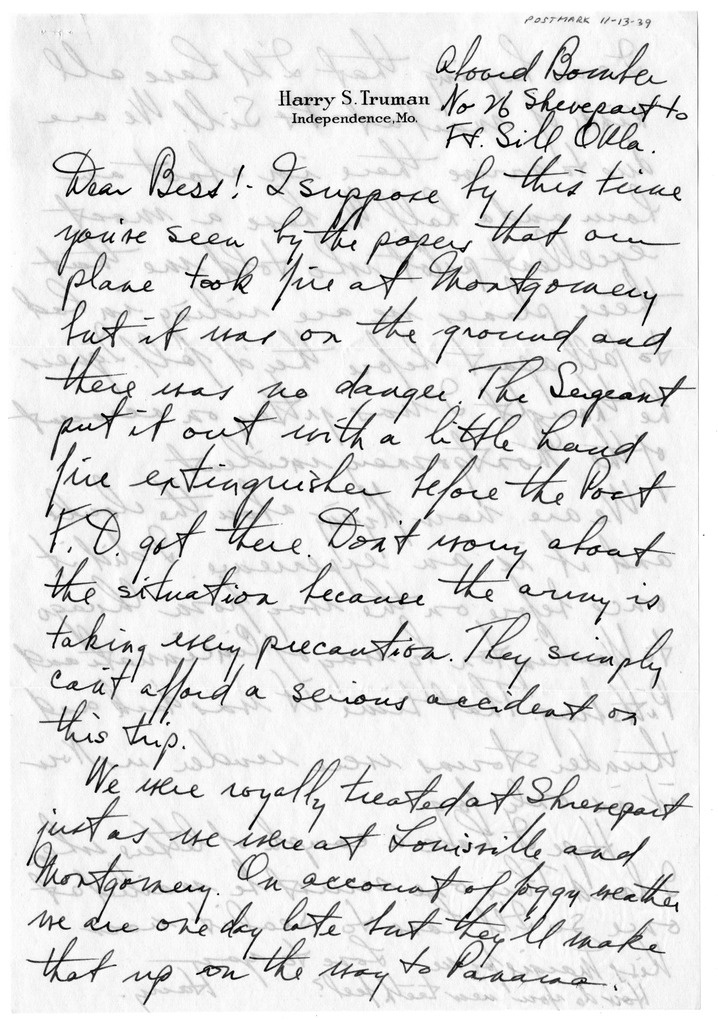 POSTMARK 11-13-39
Aboard Bomber
Harry S. Truman
Independence, Mo.
No 26 Shreveport to
Ft. Sill Okla.
Dear Bess:- I suppose by this time
you've seen by the papers that our
plane took fire at Montgomery
but it was on the ground and
there was no danger. The Sergeant
put it out with a little hand
fire extinguisher before the Post
F.D. got there. Don't worry about
the situation because the army is
taking every precaution. They simply
can't afford a serious accident on
this trip.
We were royally treated at Shreveport
just as we were at Louisville and
Montgomery. On account of foggy weather
we are one day late but they'll make
that up on the way to Panama.